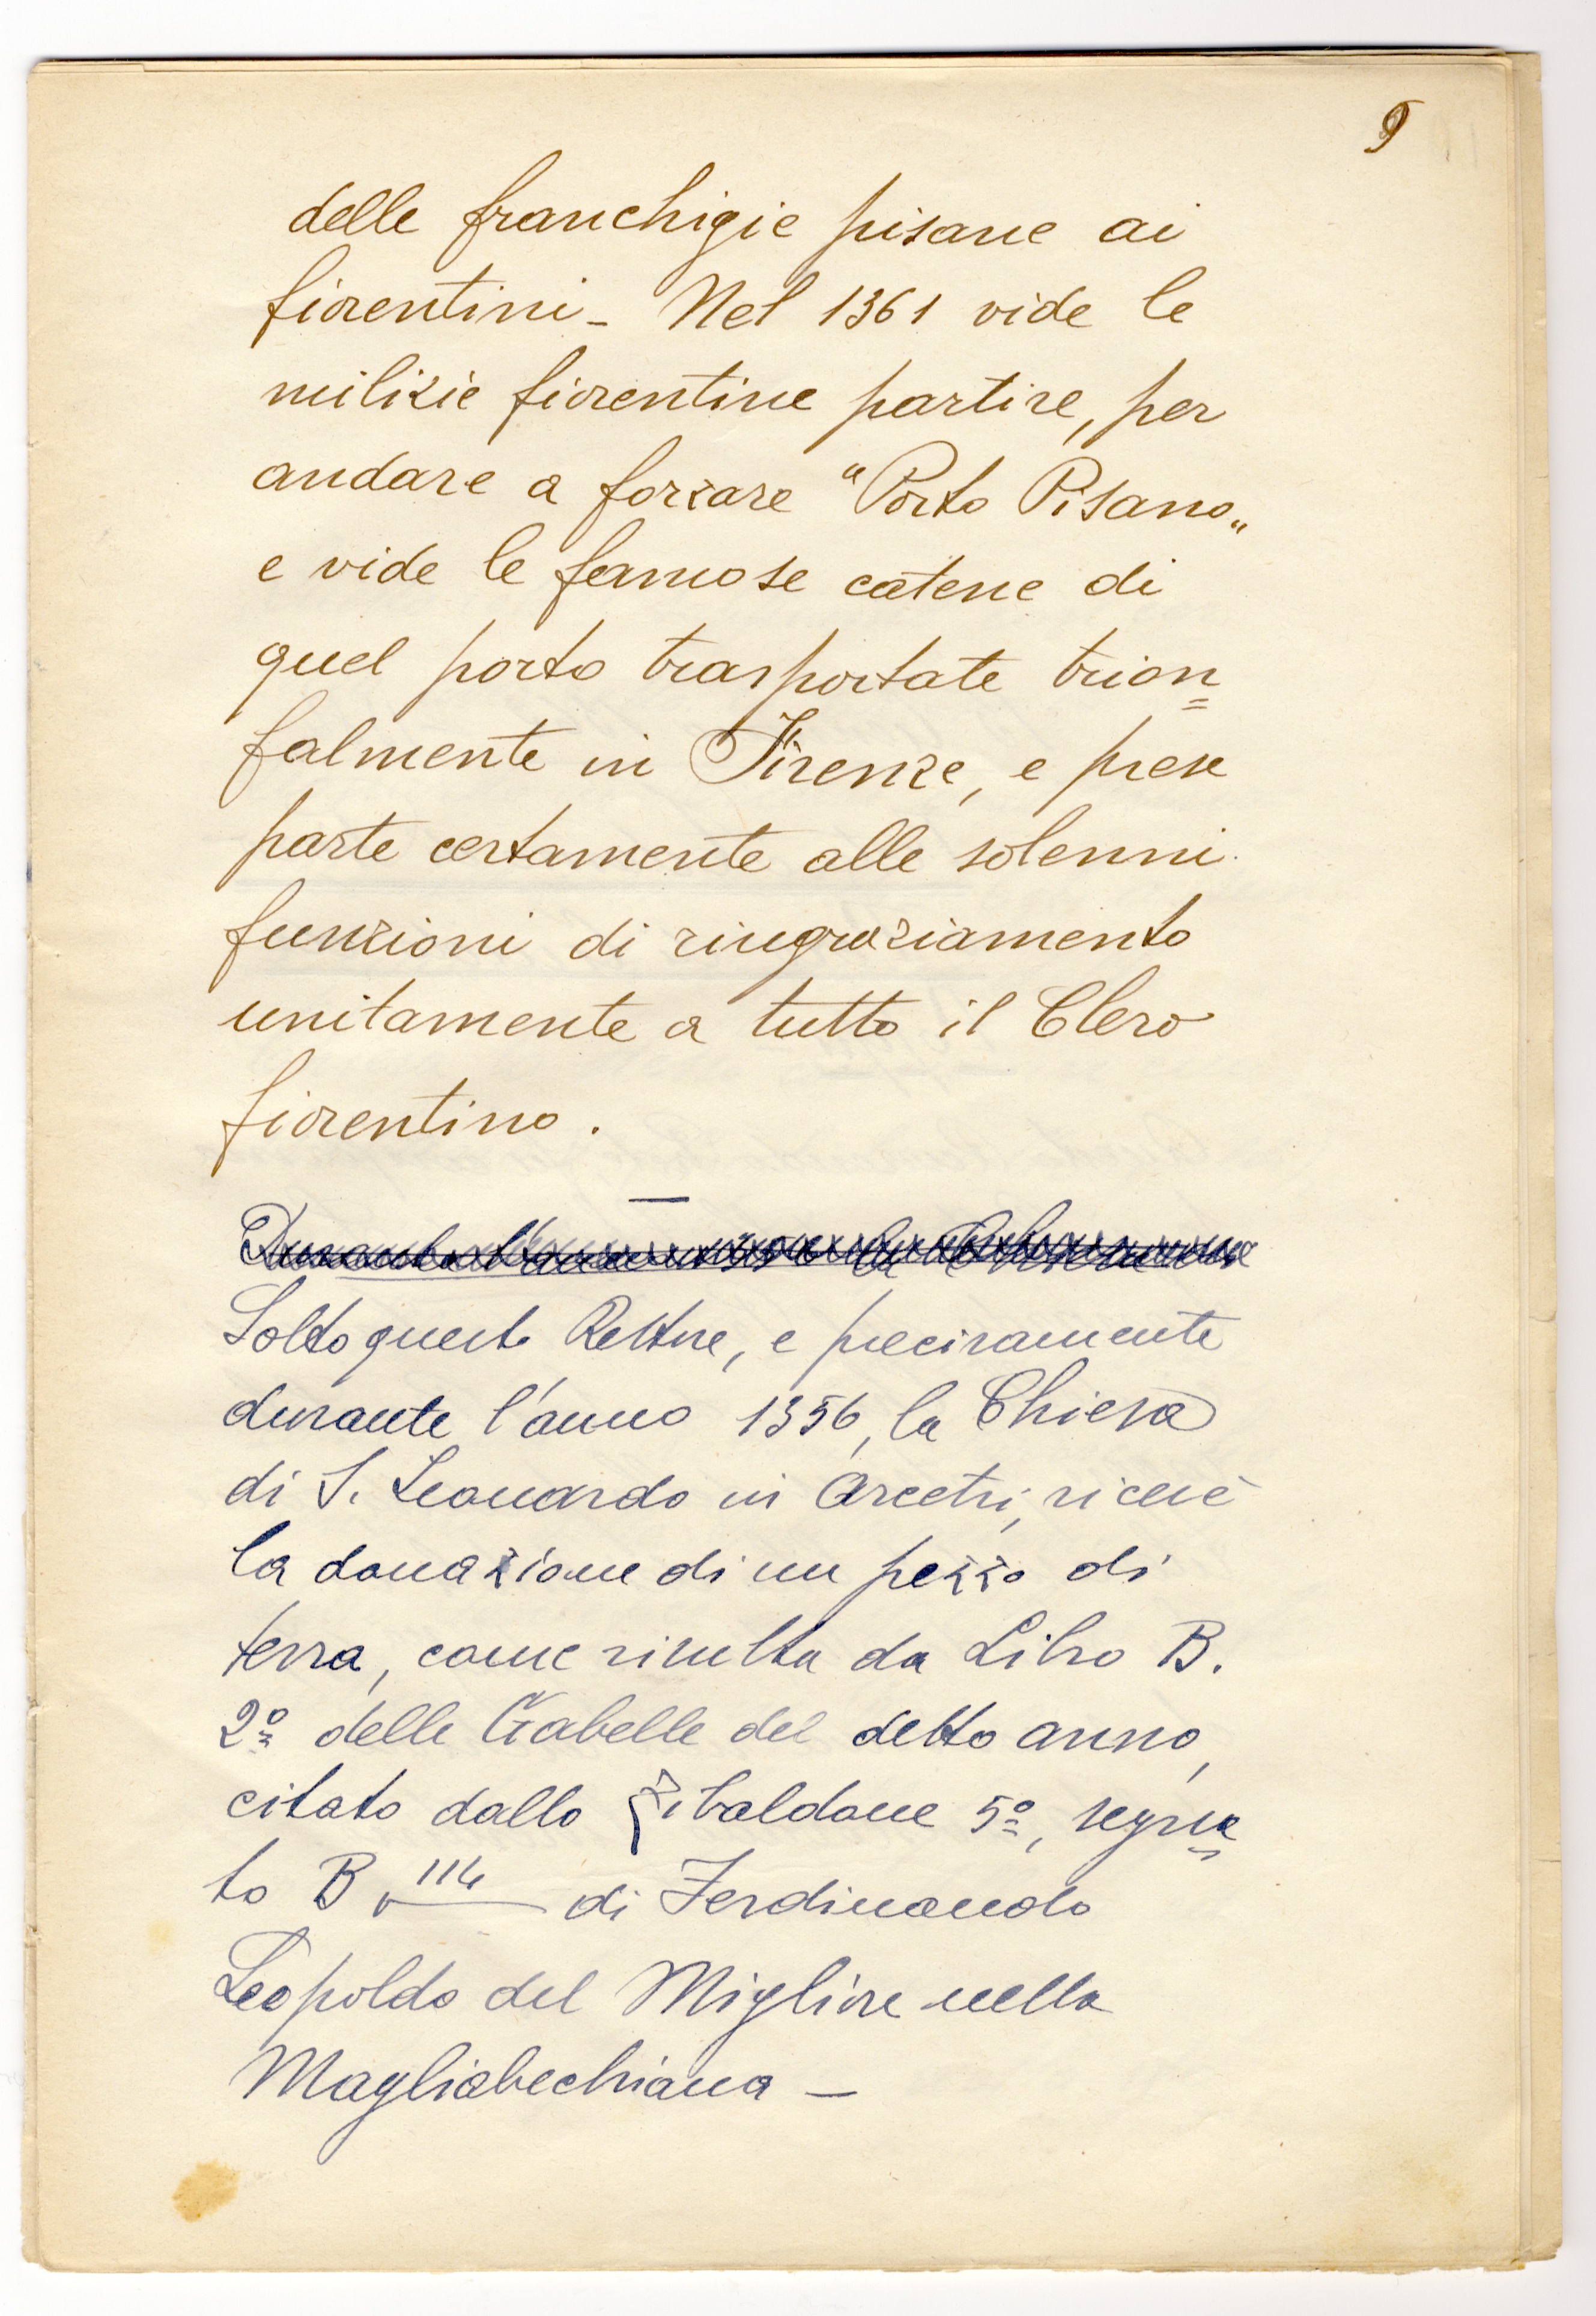 9
delle franchigie pisane ai
fiorentini - Nel 1361 vide le
milizie fiorentine partire, per
andare a forzare "Porto Pisano„
e vide le famose catene di
quel porto trasportate trion=
falmente in Firenze, e prese
parte certamente alle solenni
funzioni di ringraziamento
unitamente a tutto il Clero
fiorentino.
Durante l'anno 1356 la
Sotto questo Rettore, e precisamente
durante l'anno 1356, la Chiesa
di S. Leonardo in Arcetri, ricevè
la donazione di un pezzo di
terra, come risulta da Libro B.
2º delle Gabelle del detto anno,
citato dallo Zibaldone 5º, segna=
to B 114 di Ferdinando
Leopoldo del Migliore nella
Magliabechiana -